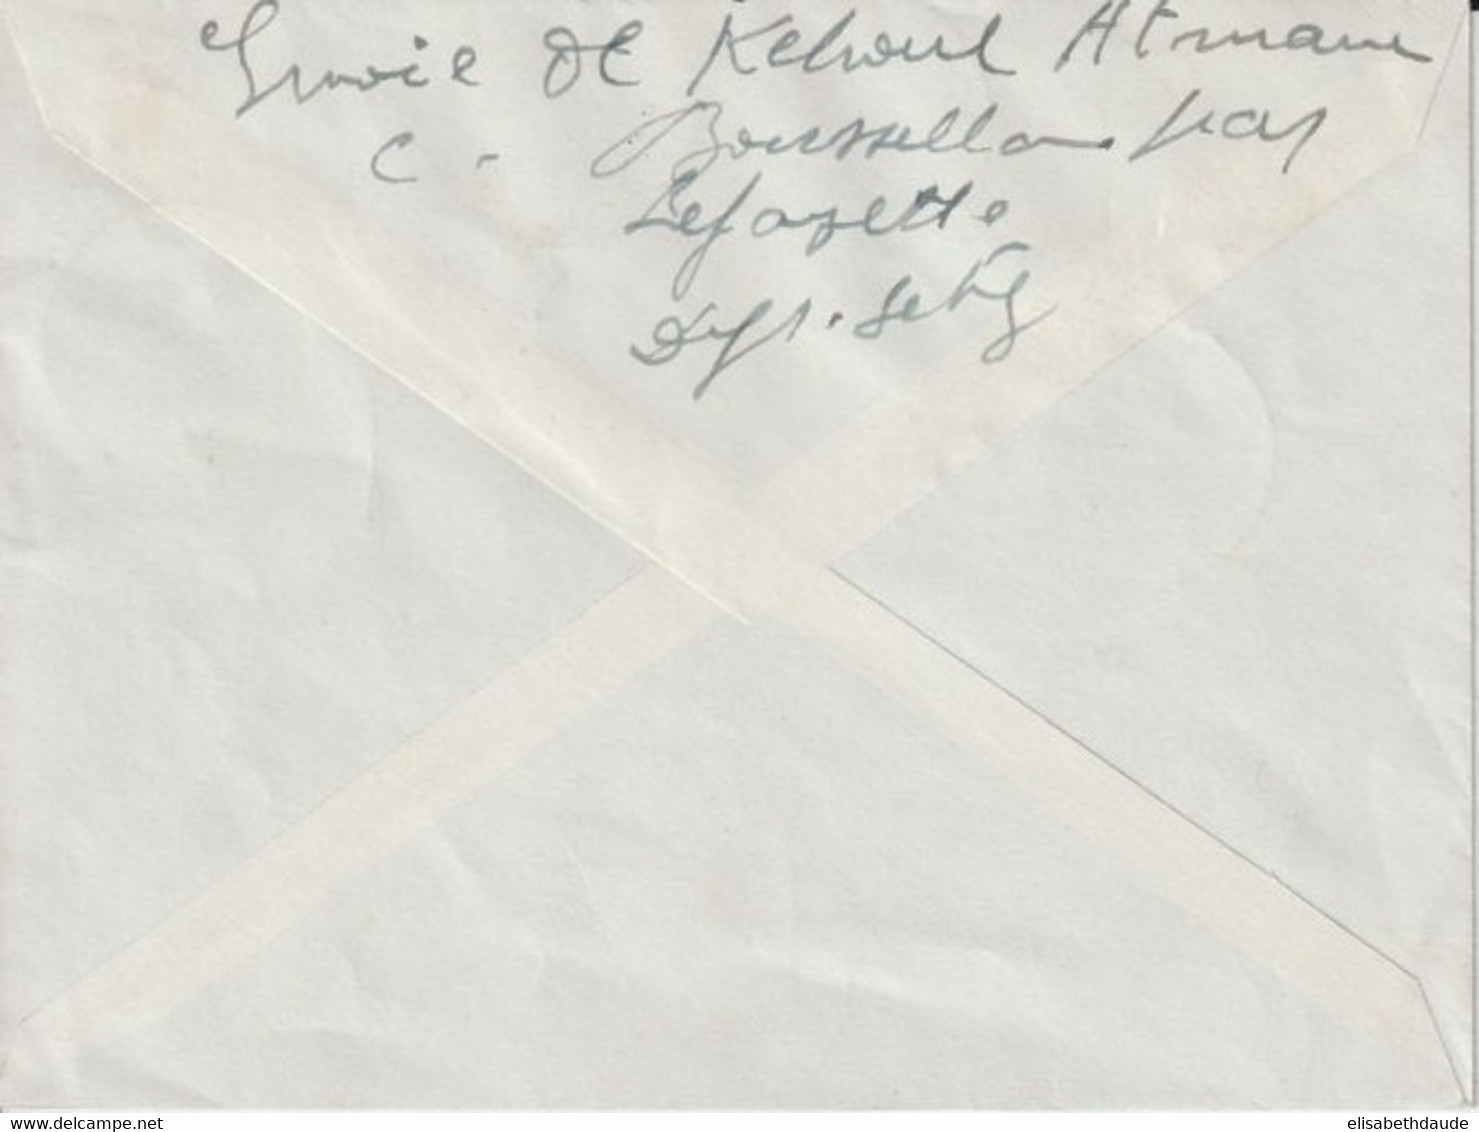 Envoie de Kehoul Atmane
C - Boussellam par
Lefayette
Dept. Setif
www.delcampe.net
elisabethdaude